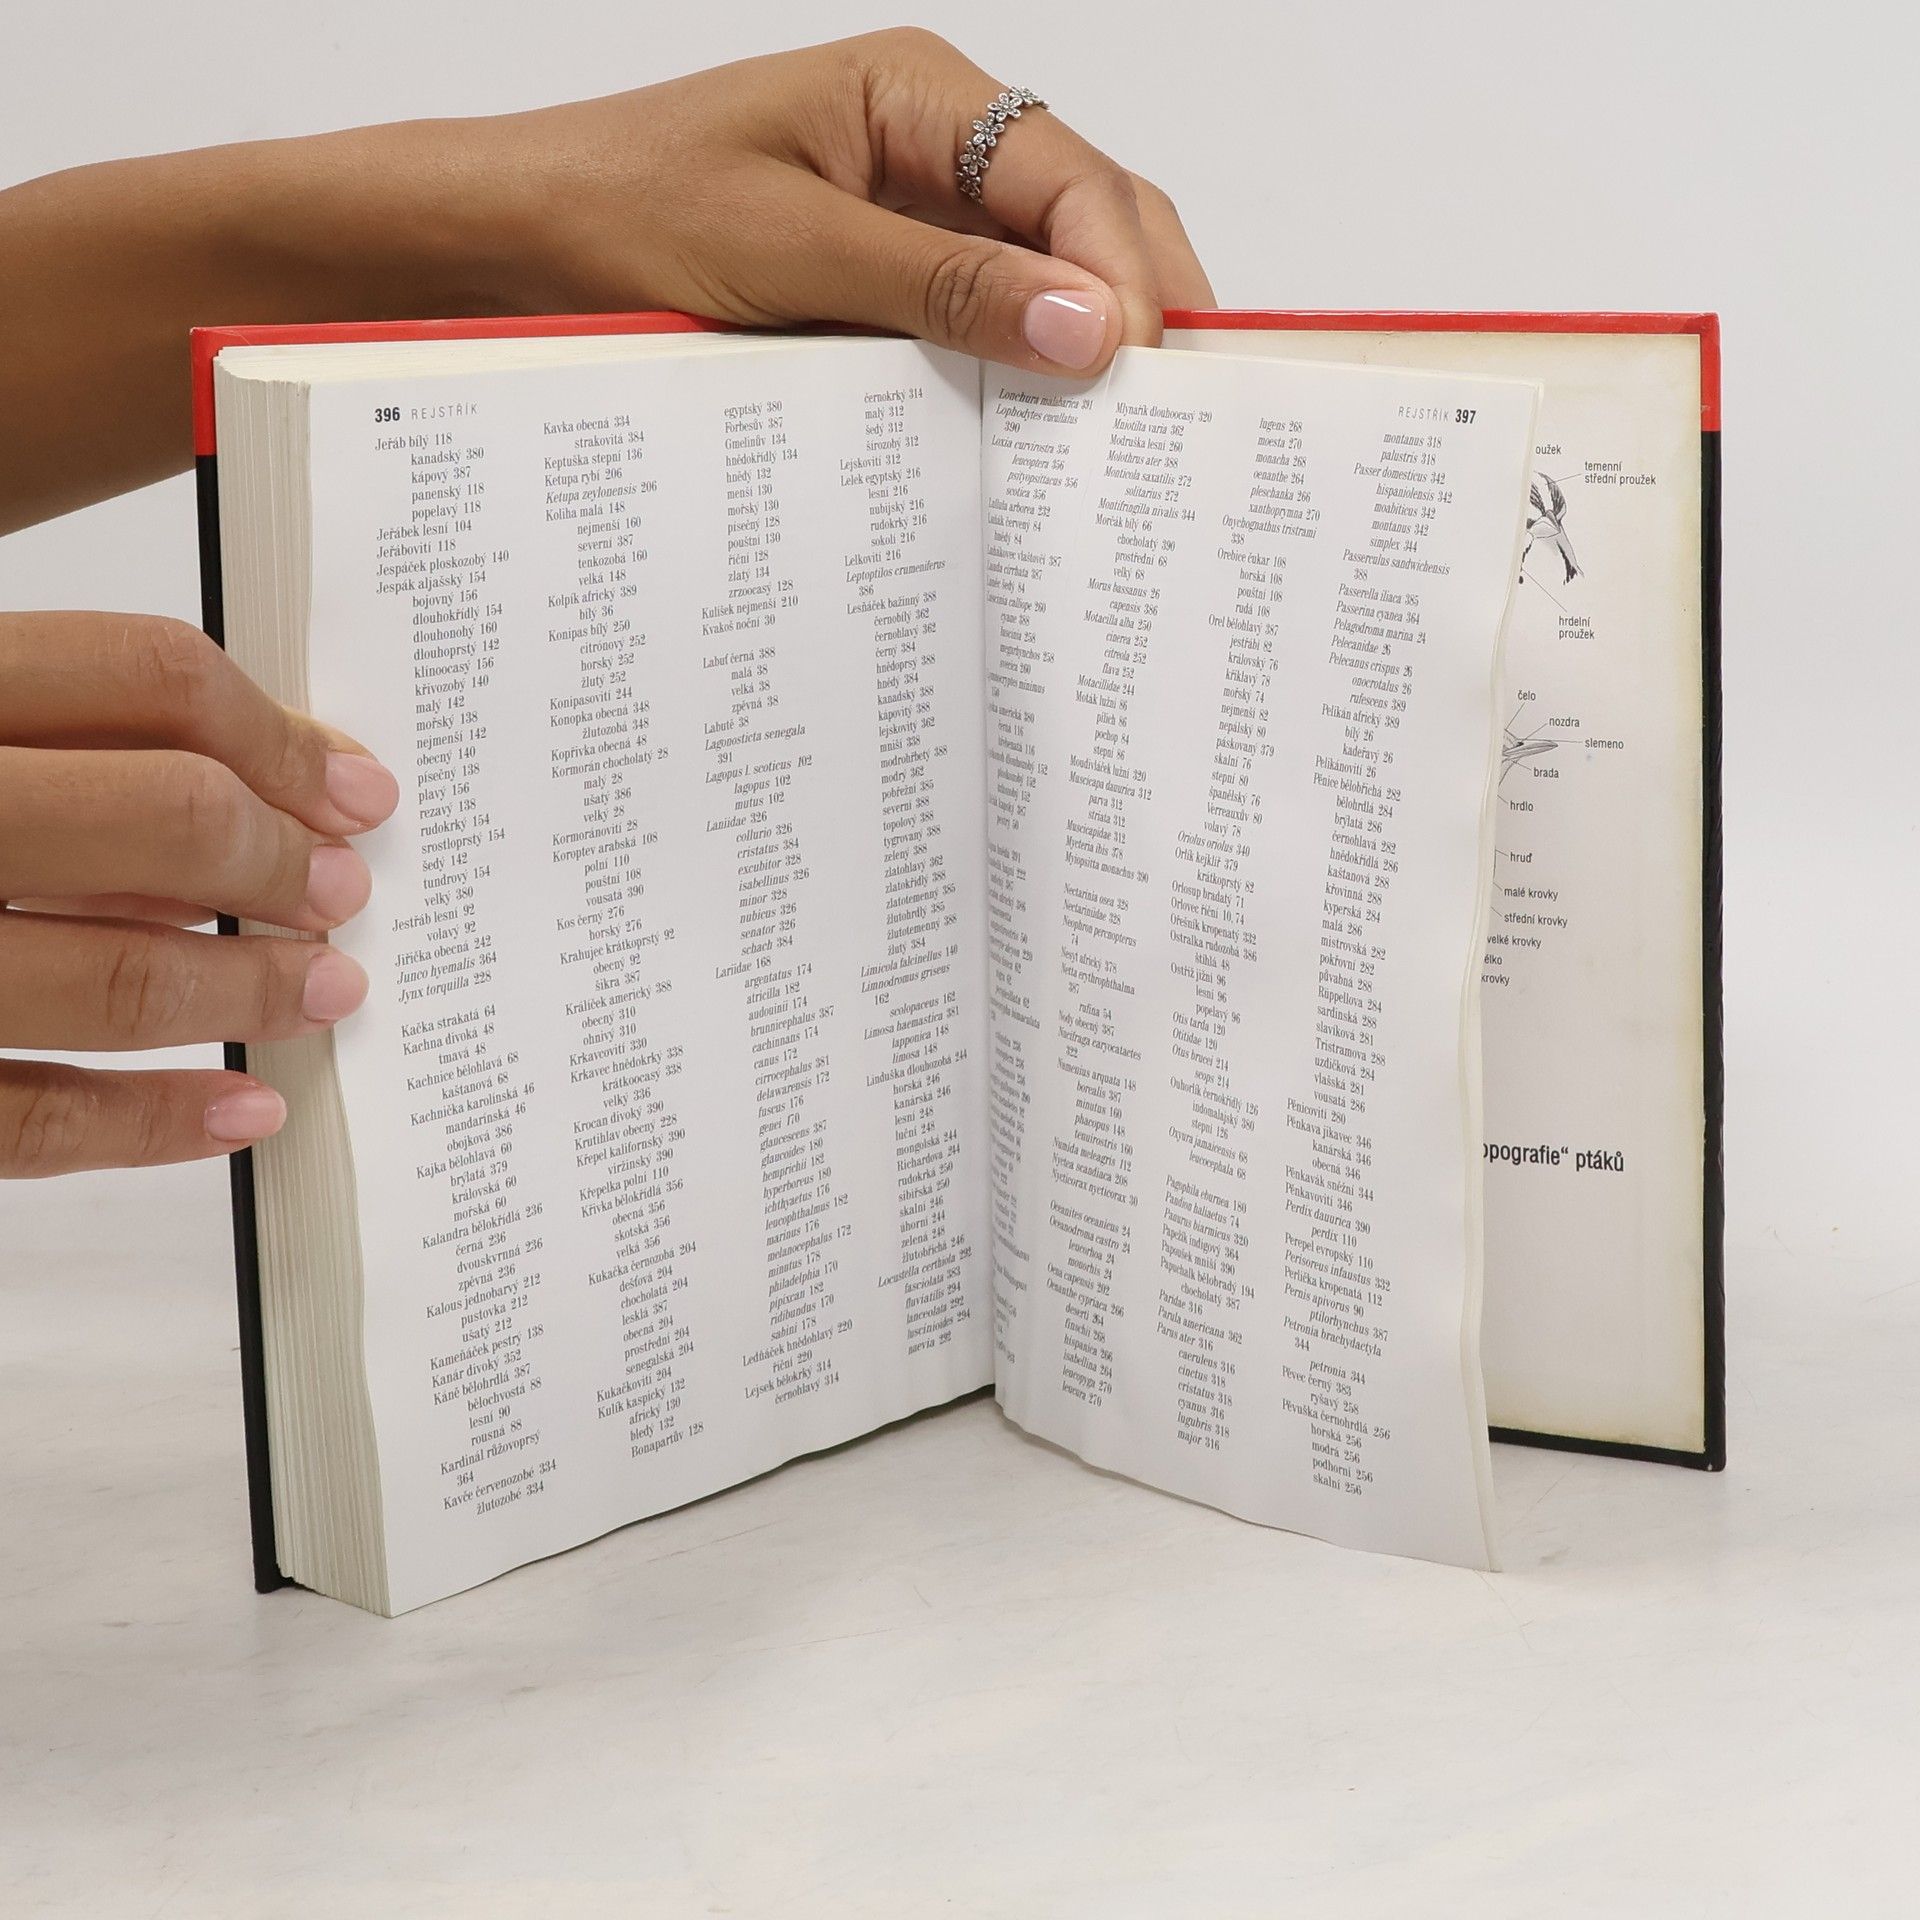 396 REJSTŘÍK
Jeřáb bílý 118
kanadský 380
kápový 387
panenský 118
popelavý 118
Jeřábek lesní 104
Jeřábovití 118
Jespáček ploskozobý 140
Jespák aljašský 154
bojovný 156
dlouhokřídlý 154
dlouhonohý 160
dlouhoprstý 142
klínoocasý 156
křivozobý 140
malý 142
mořský 138
nejmenší 142
obecný 140
písečný 138
plavý 156
rezavý 138
rudokrký 154
srostloprstý 154
šedý 142
tundrový 154
velký 380
Jestřáb lesní 92
volavý 92
Jiřička obecná 242
Junco hyemalis 364
Jynx torquilla 228
Kačka strakatá 64
Kachna divoká 48
tmavá 48
Kachnice bělohlavá 68
kaštanová 68
Kachnička karolinská 46
mandarinská 46
obojková 386
Kajka bělohlavá 60
brýlatá 379
královská 60
mořská 60
Kalandra bělokřídlá 236
černá 236
dvouskvrnná 236
zpěvná 236
Kalous jednobarvý 212
pustovka 212
ušatý 212
Kameňáček pestrý 138
Kanár divoký 352
Káně bělohrdlá 387
bělochvostá 88
lesní 90
rousná 88
Kardinál růžovoprsý
364
Kavče červenozobé 334
žlutozobé 334
Kavka obecná 334
strakovitá 384
Keptuška stepní 136
Ketupa rybí 206
Ketupa zeylonensis 206
Koliha malá 148
nejmenší 160
severní 387
tenkozobá 160
velká 148
Kolpík africký 389
bílý 36
Konipas bílý 250
citrónový 252
horský 252
žlutý 252
Konipasovití 244
Konopka obecná 348
žlutozobá 348
Kopřivka obecná 48
Kormorán chocholatý 28
malý 28
ušatý 386
velký 28
Kormoránovití 28
Koroptev arabská 108
polní 110
pouštní 108
vousatá 390
Kos černý 276
horský 276
Krahujec krátkoprstý 92
obecný 92
šikra 387
Králíček americký 388
obecný 310
ohnivý 310
Krkavcovití 330
Krkavec hnědokrký 338
krátkoocasý 338
velký 336
Krocan divoký 390
Krutihlav obecný 228
Křepel kalifornský 390
viržinský 390
Křepelka polní 110
Křivka bělokřídlá 356
obecná 356
skotská 356
velká 356
Kukačka černozobá 204
dešťová 204
chocholatá 204
lesklá 387
obecná 204
prostřední 204
senegalská 204
Kukačkovití 204
Kulík kaspický 132
africký 130
bledý 132
Bonapartův 128
egyptský 380
Forbesův 387
Gmelinův 134
hnědokřídlý 134
hnědý 132
menší 130
mořský 130
písečný 128
pouštní 130
říční 128
zlatý 134
zrzoocasý 128
Kulíšek nejmenší 210
Kvakoš noční 30
Labuť černá 388
malá 38
velká 38
zpěvná 38
Labutě 38
Lagonosticta senegala
391
Lagopus l. scoticus 102
lagopus 102
mutus 102
Laniidae 326
collurio 326
cristatus 384
excubitor 328
isabellinus 326
minor 328
nubicus 326
senator 326
schach 384
Lariidae 168
argentatus 174
atricilla 182
audouinii 174
brunnicephalus 387
cachinnans 174
canus 172
cirrocephalus 381
delawarensis 172
fuscus 176
genei 170
glaucescens 387
glaucoides 180
hemprichii 182
hyperboreus 180
ichthyaetus 176
leucophthalmus 182
marinus 176
melanocephalus 172
minutus 178
philadelphia 170
pipixcan 182
ridibundus 170
sabini 178
Ledňáček hnědohlavý 220
říční 220
Lejsek bělokrký 314
černohlavý 314
černokrký 314
malý 312
šedý 312
širozobý 312
Lejskovití 312
Lelek egyptský 216
lesní 216
nubijský 216
rudokrký 216
sokolí 216
Lelkovití 216
Leptoptilos crumeniferus
386
Lesňáček bažinný 388
černobílý 362
černohlavý 362
černý 384
hnědoprsý 388
hnědý 384
kanadský 388
kápovitý 388
lejskovitý 362
mniší 338
modrohřbetý 388
modrý 362
pobřežní 385
severní 388
topolový 388
tygrovaný 388
zelený 388
zlatohlavý 362
zlatokřídlý 388
zlatotemenný 385
žlutohrdlý 385
žlutotemenný 388
žlutý 384
Limicola falcinellus 140
Limnodromus griseus
162
scolopaceus 162
Limosa haemastica 381
lapponica 148
limosa 148
Linduška dlouhozobá 244
horská 246
kanárská 246
lesní 248
luční 248
mongolská 244
Richardova 244
rudokrká 250
sibiřská 250
skalní 246
úhorní 244
zelená 248
žlutobřichá 246
Locustella certhiola 292
fasciolata 383
fluviatilis 294
lanceolata 292
luscinioides 294
naevia 292
REJSTŘÍK 397
Lonchura malabarica 391
Lophodytes cucullatus
390
Loxia curvirostra 356
leucoptera 356
pityopsittacus 356
scotica 356
Lullula arborea 232
Luňák červený 84
hnědý 84
Mlynařík dlouhoocasý 320
Mniotilta varia 362
Modruška lesní 260
Molothrus ater 388
Monticola saxatilis 272
solitarius 272
Montifringilla nivalis 344
Morčák bílý 66
chocholatý 390
prostřední 68
velký 68
Morus bassanus 26
capensis 386
Motacilla alba 250
cinerea 252
citreola 252
flava 252
Motacillidae 244
Moták lužní 86
pilich 86
pochop 84
stepní 86
Moudivláček lužní 320
Muscicapa dauurica 312
parva 312
striata 312
Muscicapidae 312
Mycteria ibis 378
Myiopsitta monachus 390
Nectarinia osea 328
Nectariniidae 328
Neophron percnopterus
74
Nesyt africký 378
Netta erythrophthalma
387
rufina 54
Nody obecný 387
Nucifraga caryocatactes
322
Numenius arquata 148
borealis 387
minutus 160
phaeopus 148
tenuirostris 160
Numida meleagris 112
Nyctea scandiaca 208
Nycticorax nycticorax 30
Oceanites oceanicus 24
Oceanodroma castro 24
leucorhoa 24
monorhis 24
Oena capensis 202
Oenanthe cypriaca 266
deserti 264
finschii 268
hispanica 266
isabellina 264
leucopyga 270
leucura 270
lugens 268
moesta 270
monacha 268
oenanthe 264
pleschanka 266
xanthoprymna 270
Onychognathus tristrami
338
Orebice čukar 108
horská 108
pouštní 108
rudá 108
Orel bělohlavý 387
jestřábí 82
královský 76
křiklavý 78
mořský 74
nejmenší 82
nepálský 80
páskovaný 379
skalní 76
stepní 80
španělský 76
Verreauxův 80
volavý 78
Oriolus oriolus 340
Orlík kejklíř 379
krátkoprstý 82
Orlosup bradatý 71
Orlovec říční 10, 74
Ořešník kropenatý 332
Ostralka rudozobá 386
štíhlá 48
Ostříž jižní 96
lesní 96
popelavý 96
Otis tarda 120
Otitidae 120
Otus brucei 214
scops 214
Ouhorlík černokřídlý 126
indomalajský 380
stepní 126
Oxyura jamaicensis 68
leucocephala 68
Pagophila eburnea 180
Pandion haliaetus 74
Panurus biarmicus 320
Papežík indigový 364
Papoušek mniší 390
Papuchalk bělobradý 194
chocholatý 387
Paridae 316
Parula americana 362
Parus ater 316
caeruleus 316
cinctus 318
cristatus 318
cyanus 316
lugubris 318
major 316
montanus 318
palustris 318
Passer domesticus 342
hispaniolensis 342
moabiticus 342
montanus 342
simplex 344
Passerculus sandwichensis
388
Passerella iliaca 385
Passerina cyanea 364
Pelagodroma marina 24
Pelecanidae 26
Pelecanus crispus 26
onocrotalus 26
rufescens 389
Pelikán africký 389
bílý 26
kadeřavý 26
Pelikánovití 26
Pěnice bělobřichá 282
bělohrdlá 284
brýlatá 286
černohlavá 282
hnědokřídlá 286
kaštanová 288
křovinná 288
kyperská 284
malá 286
mistrovská 282
pokřovní 282
půvabná 288
Rüppellova 284
sardinská 288
slavíková 281
Tristramova 288
uzdičková 284
vlašská 281
vousatá 286
Pěnicovití 280
Pěnkava jikavec 346
kanárská 346
obecná 346
Pěnkavák sněžní 344
Pěnkavovití 346
Perdix dauurica 390
perdix 110
Perepel evropský 110
Perisoreus infaustus 332
Perlička kropenatá 112
Pernis apivorus 90
ptilorhynchus 387
Petronia brachydactyla
344
petronia 344
Pěvec černý 383
ryšavý 258
Pěvuška černohrdlá 256
horská 256
modrá 256
podhorní 256
skalní 256
oužek
temenní
střední proužek
hrdelní
proužek
čelo
nozdra
slemeno
brada
hrdlo
hruď
malé krovky
střední krovky
velké krovky
krovky
opografie“ ptáků